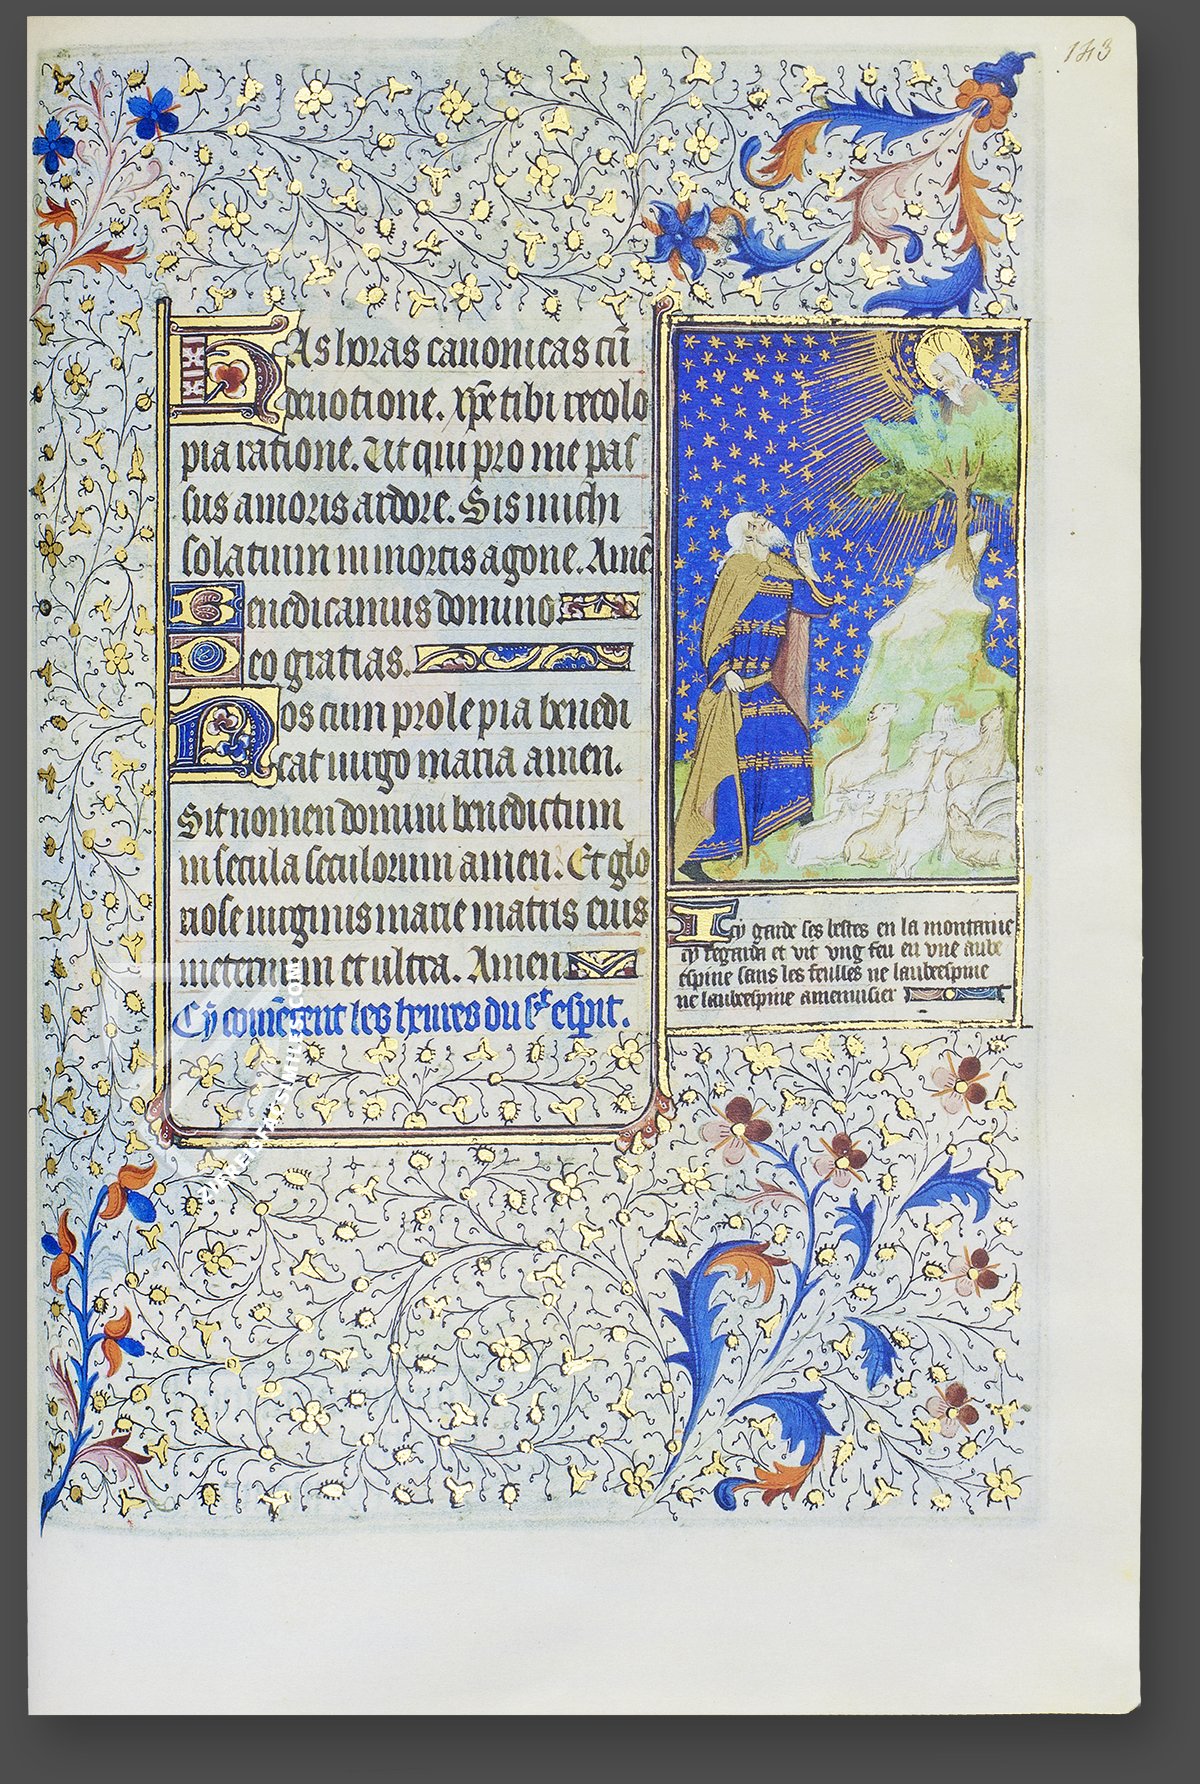 143
Has horas canonicas cū
deuotione. xp̄e tibi recolo
pia ratione. Ut qui pro me pas
sus amoris ardore. Sis michi
solatium in mortis agone. Amē
Benedicamus domino
Deo gratias.
Nos cum prole pia benedi
cat uirgo maria amen.
Sit nomen domini benedictum
in secula seculorum amen. Et glo
riose uirginis marie matris eius
in eternum et ultra. Amen
Cy cōmēcent les heures du sᵗ espit.
Icy garde ses bestes en la montaine
cy regarda et vit vng feu en vne aube
espine sans les feulles ne laubeespine
ne laubeespine amenuisier